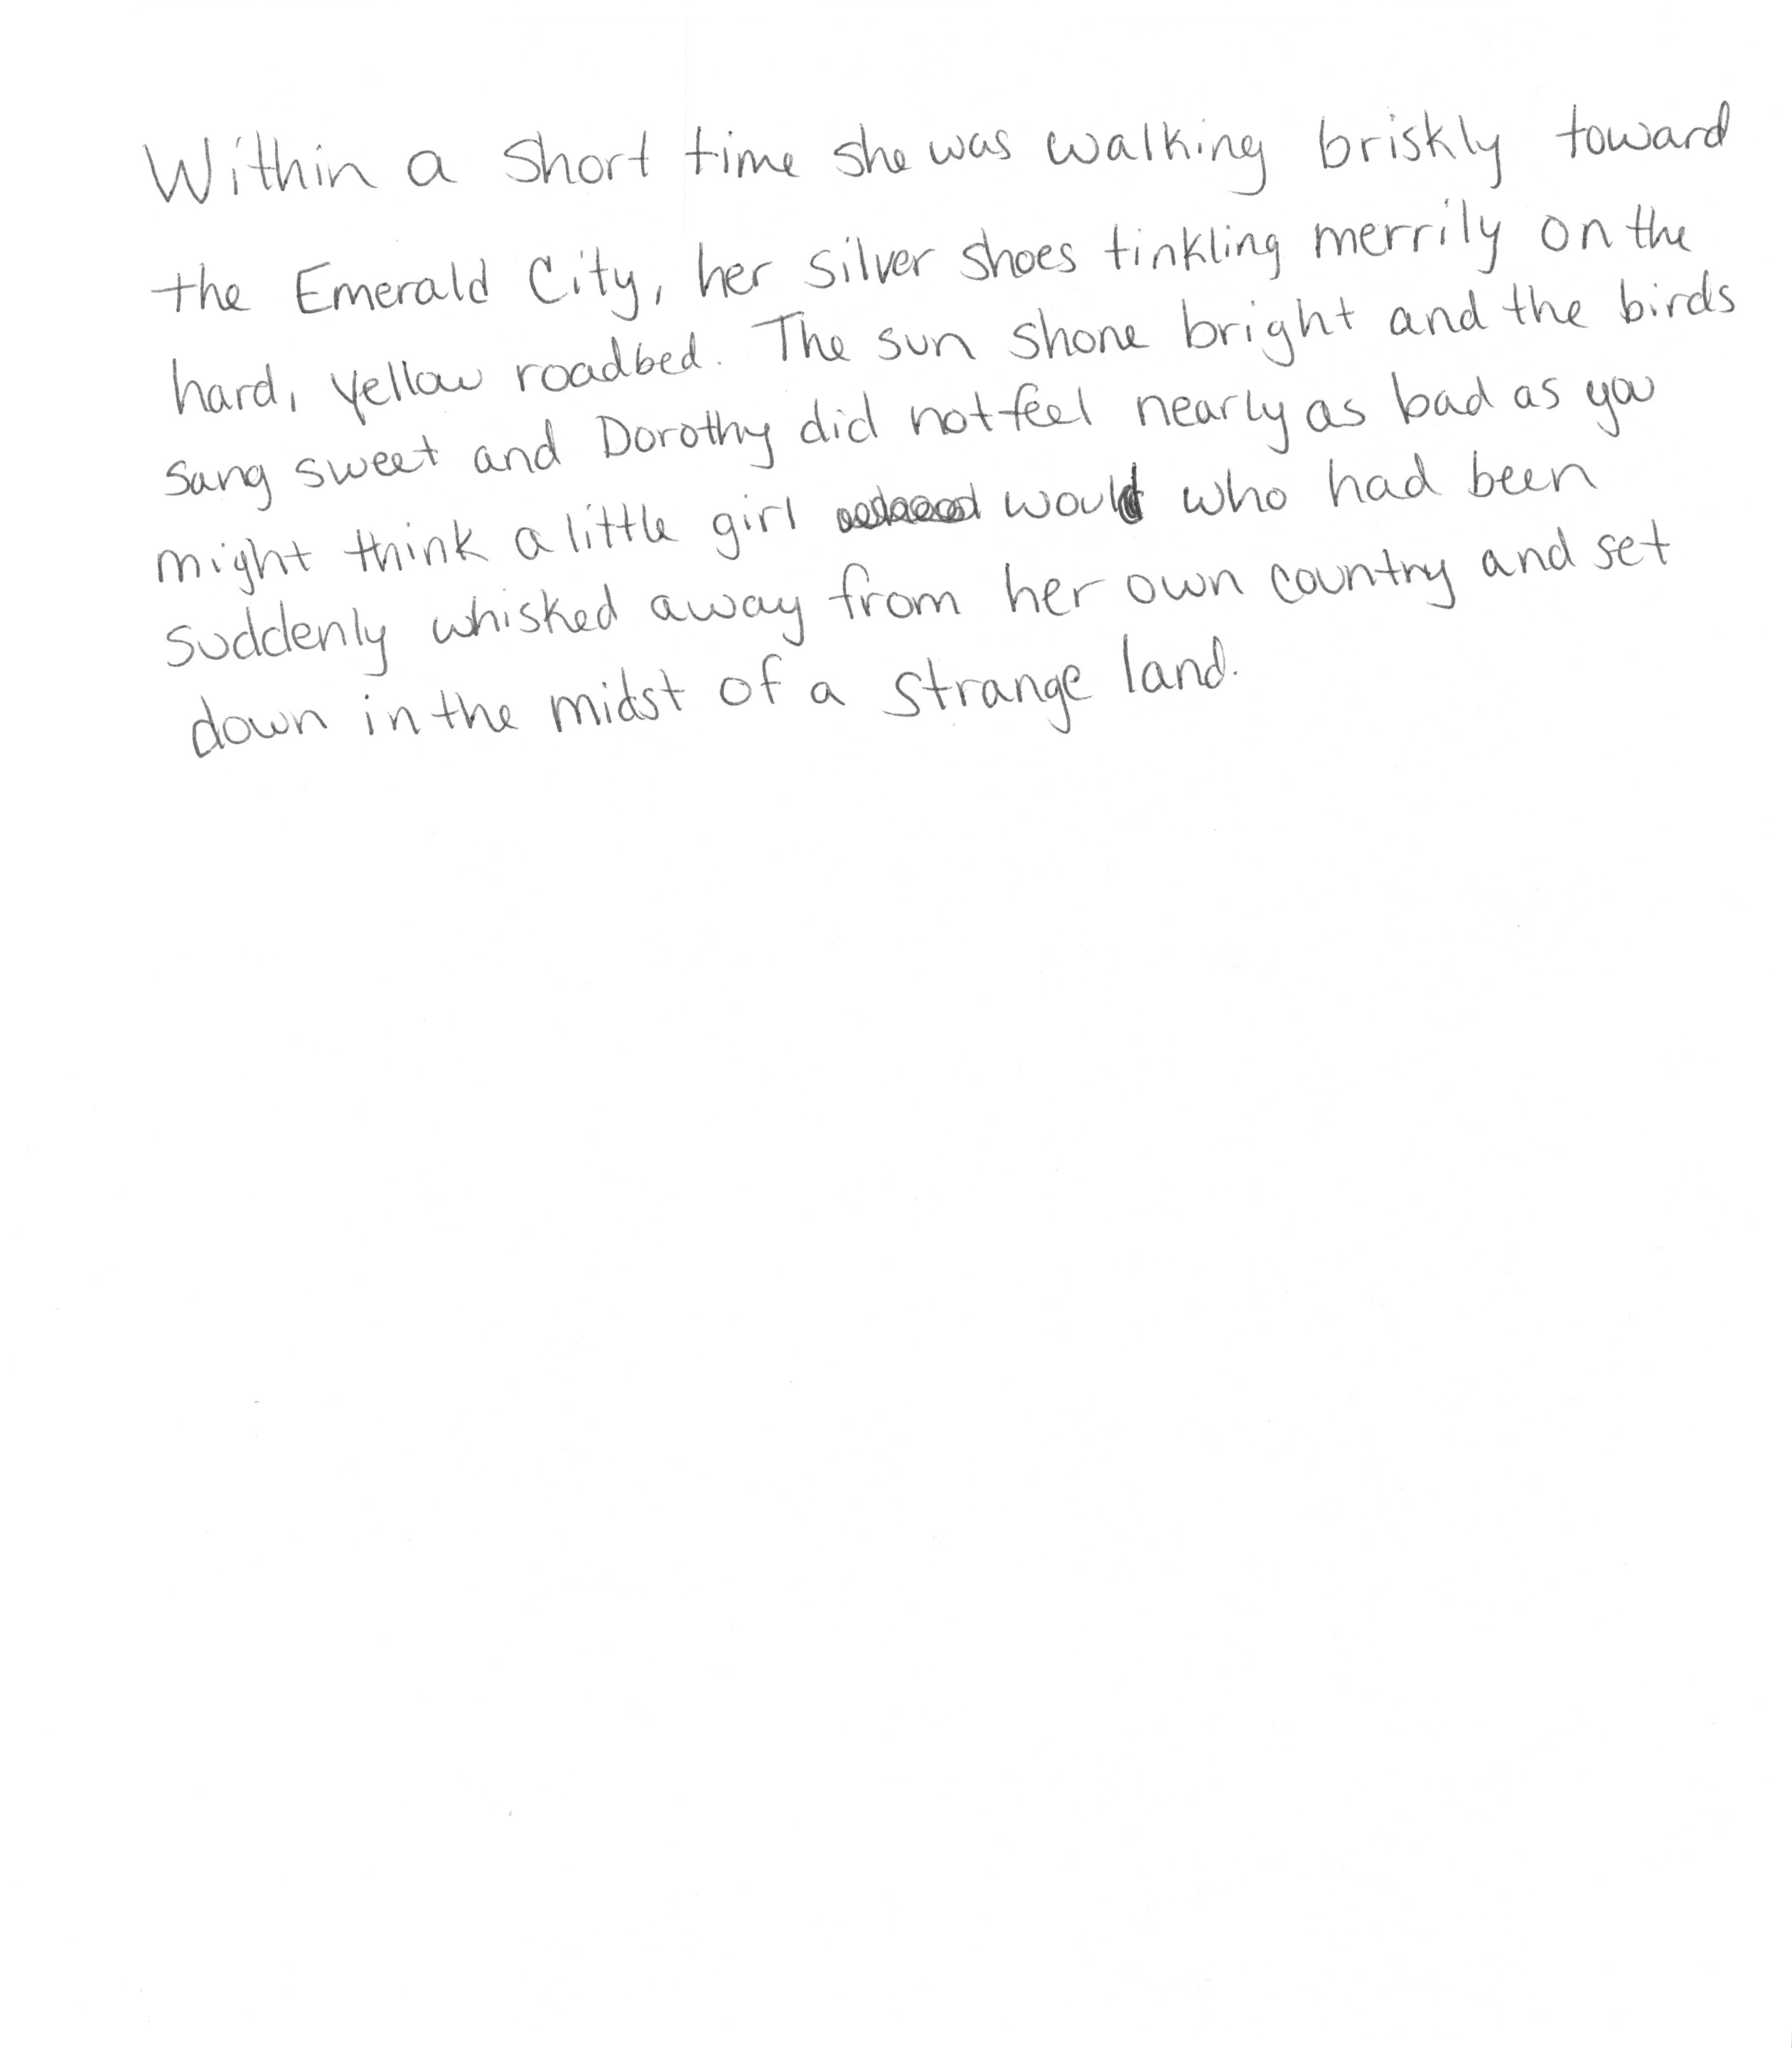 Within a short time she was walking briskly toward
the Emerald City, her silver shoes tinkling merrily on the
hard, yellow roadbed. The sun shone bright and the birds
sang sweet and Dorothy did not feel nearly as bad as you
might think a little girl would who had been
suddenly whisked away from her own country and set
down in the midst of a strange land.